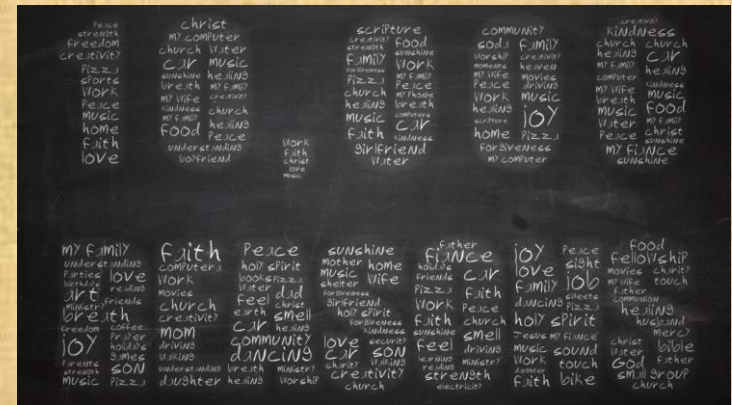 Peace
strength
freedom
creativity
Pizza
sports
work
Peace
music
home
faith
love
christ
my computer
church water
car music
sunshine healing
breath my family
my wife creativity
kindness church
my family healing
food Peace
understanding
boyfriend
work
faith
christ
love
music
scripture
creativity food
strength sunshine
family work
forgiveness my family
Pizza Peace
church my phone
healing breath
music computers
faith car
kindness
girlfriend
water
community
soda family
worship creativity
moments heaven
my family movies
my wife driving
Peace music
work
healing joy
scripture
home Pizza
forgiveness
my computer
creativity
kindness
church church
creativity car
my family healing
computer kindness
my wife music
breath food
music my family
water christ
Peace sunshine
my fiance
sunshine
my family
understanding
Parties love
birthdays reading
art friends
ministry
breath
freedom coffee
joy Prayer
holidays
games
Parents son
strength
music Pizza
faith
computers
work
movies
church
creativity
mom
driving
walking
understanding
daughter
Peace
holy spirit
books Pizza
water dad
feel christ
earth smell
car healing
community
dancing
breath ministry
healing worship
sunshine
mother home
music wife
shelter
forgiveness
girlfriend
holy spirit
forgiveness
kindness
love security
car son
charity walking
creativity
church
father
fiance
holidays car
friends
Pizza faith
work Peace
faith church
sunshine smell
feel driving
learning ministry
healing
strength
electricity
joy Peace
love sight
family job
dancing sweets
Pizza
holy spirit
Jesus my fiance
music sound
work touch
daughter
faith bike
food
fellowship
movies charity
my wife touch
father
communion
healing
husband
mercy
christ bible
water
God father
small group
church